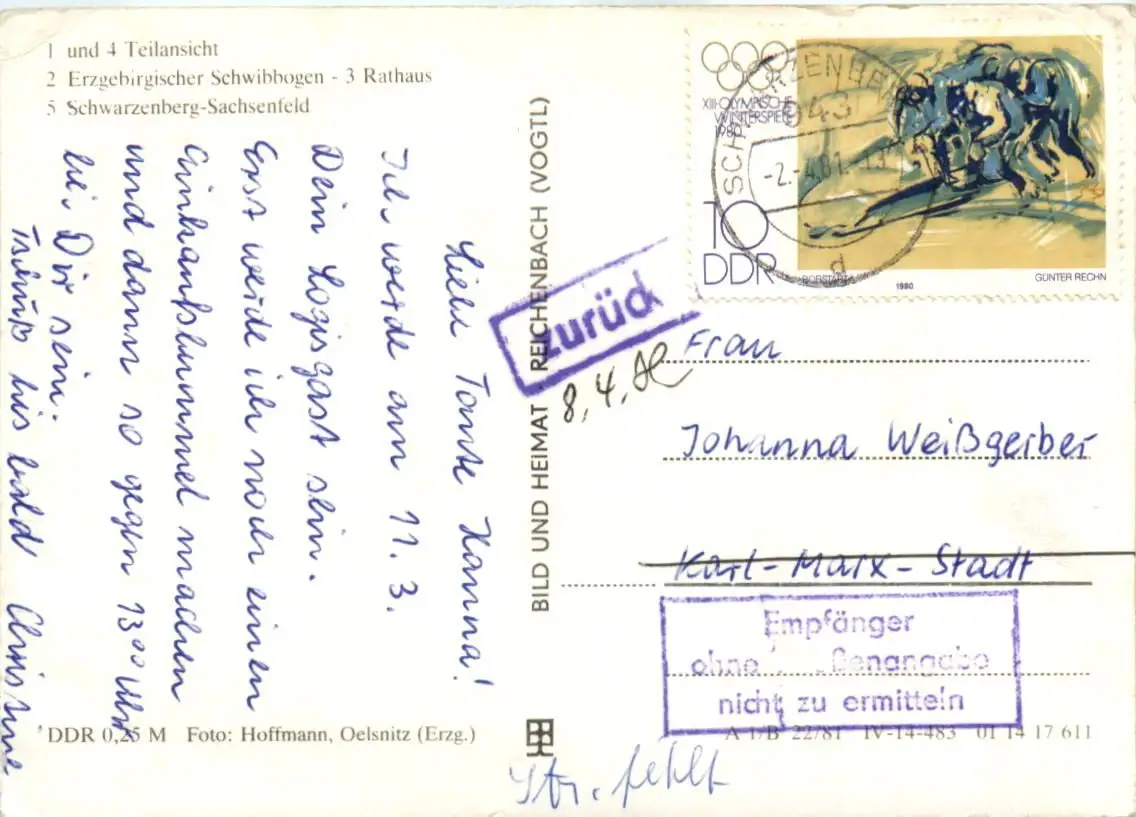 1 und 4 Teilansicht
2 Erzgebirgischer Schwibbogen - 3 Rathaus
5 Schwarzenberg-Sachsenfeld
Liebe Tante Hanna!
Ich werde am 11. 3.
Dein Logisgast sein.
Erst werde ich noch einen
Einkaufsbummel machen
und dann so gegen 13⁰⁰ Uhr
bei Dir sein.
Tschüß bis bald Christine
BILD UND HEIMAT · REICHENBACH (VOGTL)
XIII·OLYMPISCHE
WINTERSPIELE
1980
10
DDR
BOBSTART
1980
GÜNTER RECHN
SCHWARZENBERG
943
-2.-4.81-13
d
zurück
8. 4.
Frau
Johanna Weißgerber
Karl-Marx-Stadt
Empfänger
ohne ßenangabe
nicht zu ermitteln
DDR 0,25 M Foto: Hoffmann, Oelsnitz (Erzg.)
A 1/B 22/81 IV-14-483 01 14 17 611
Str. fehlt